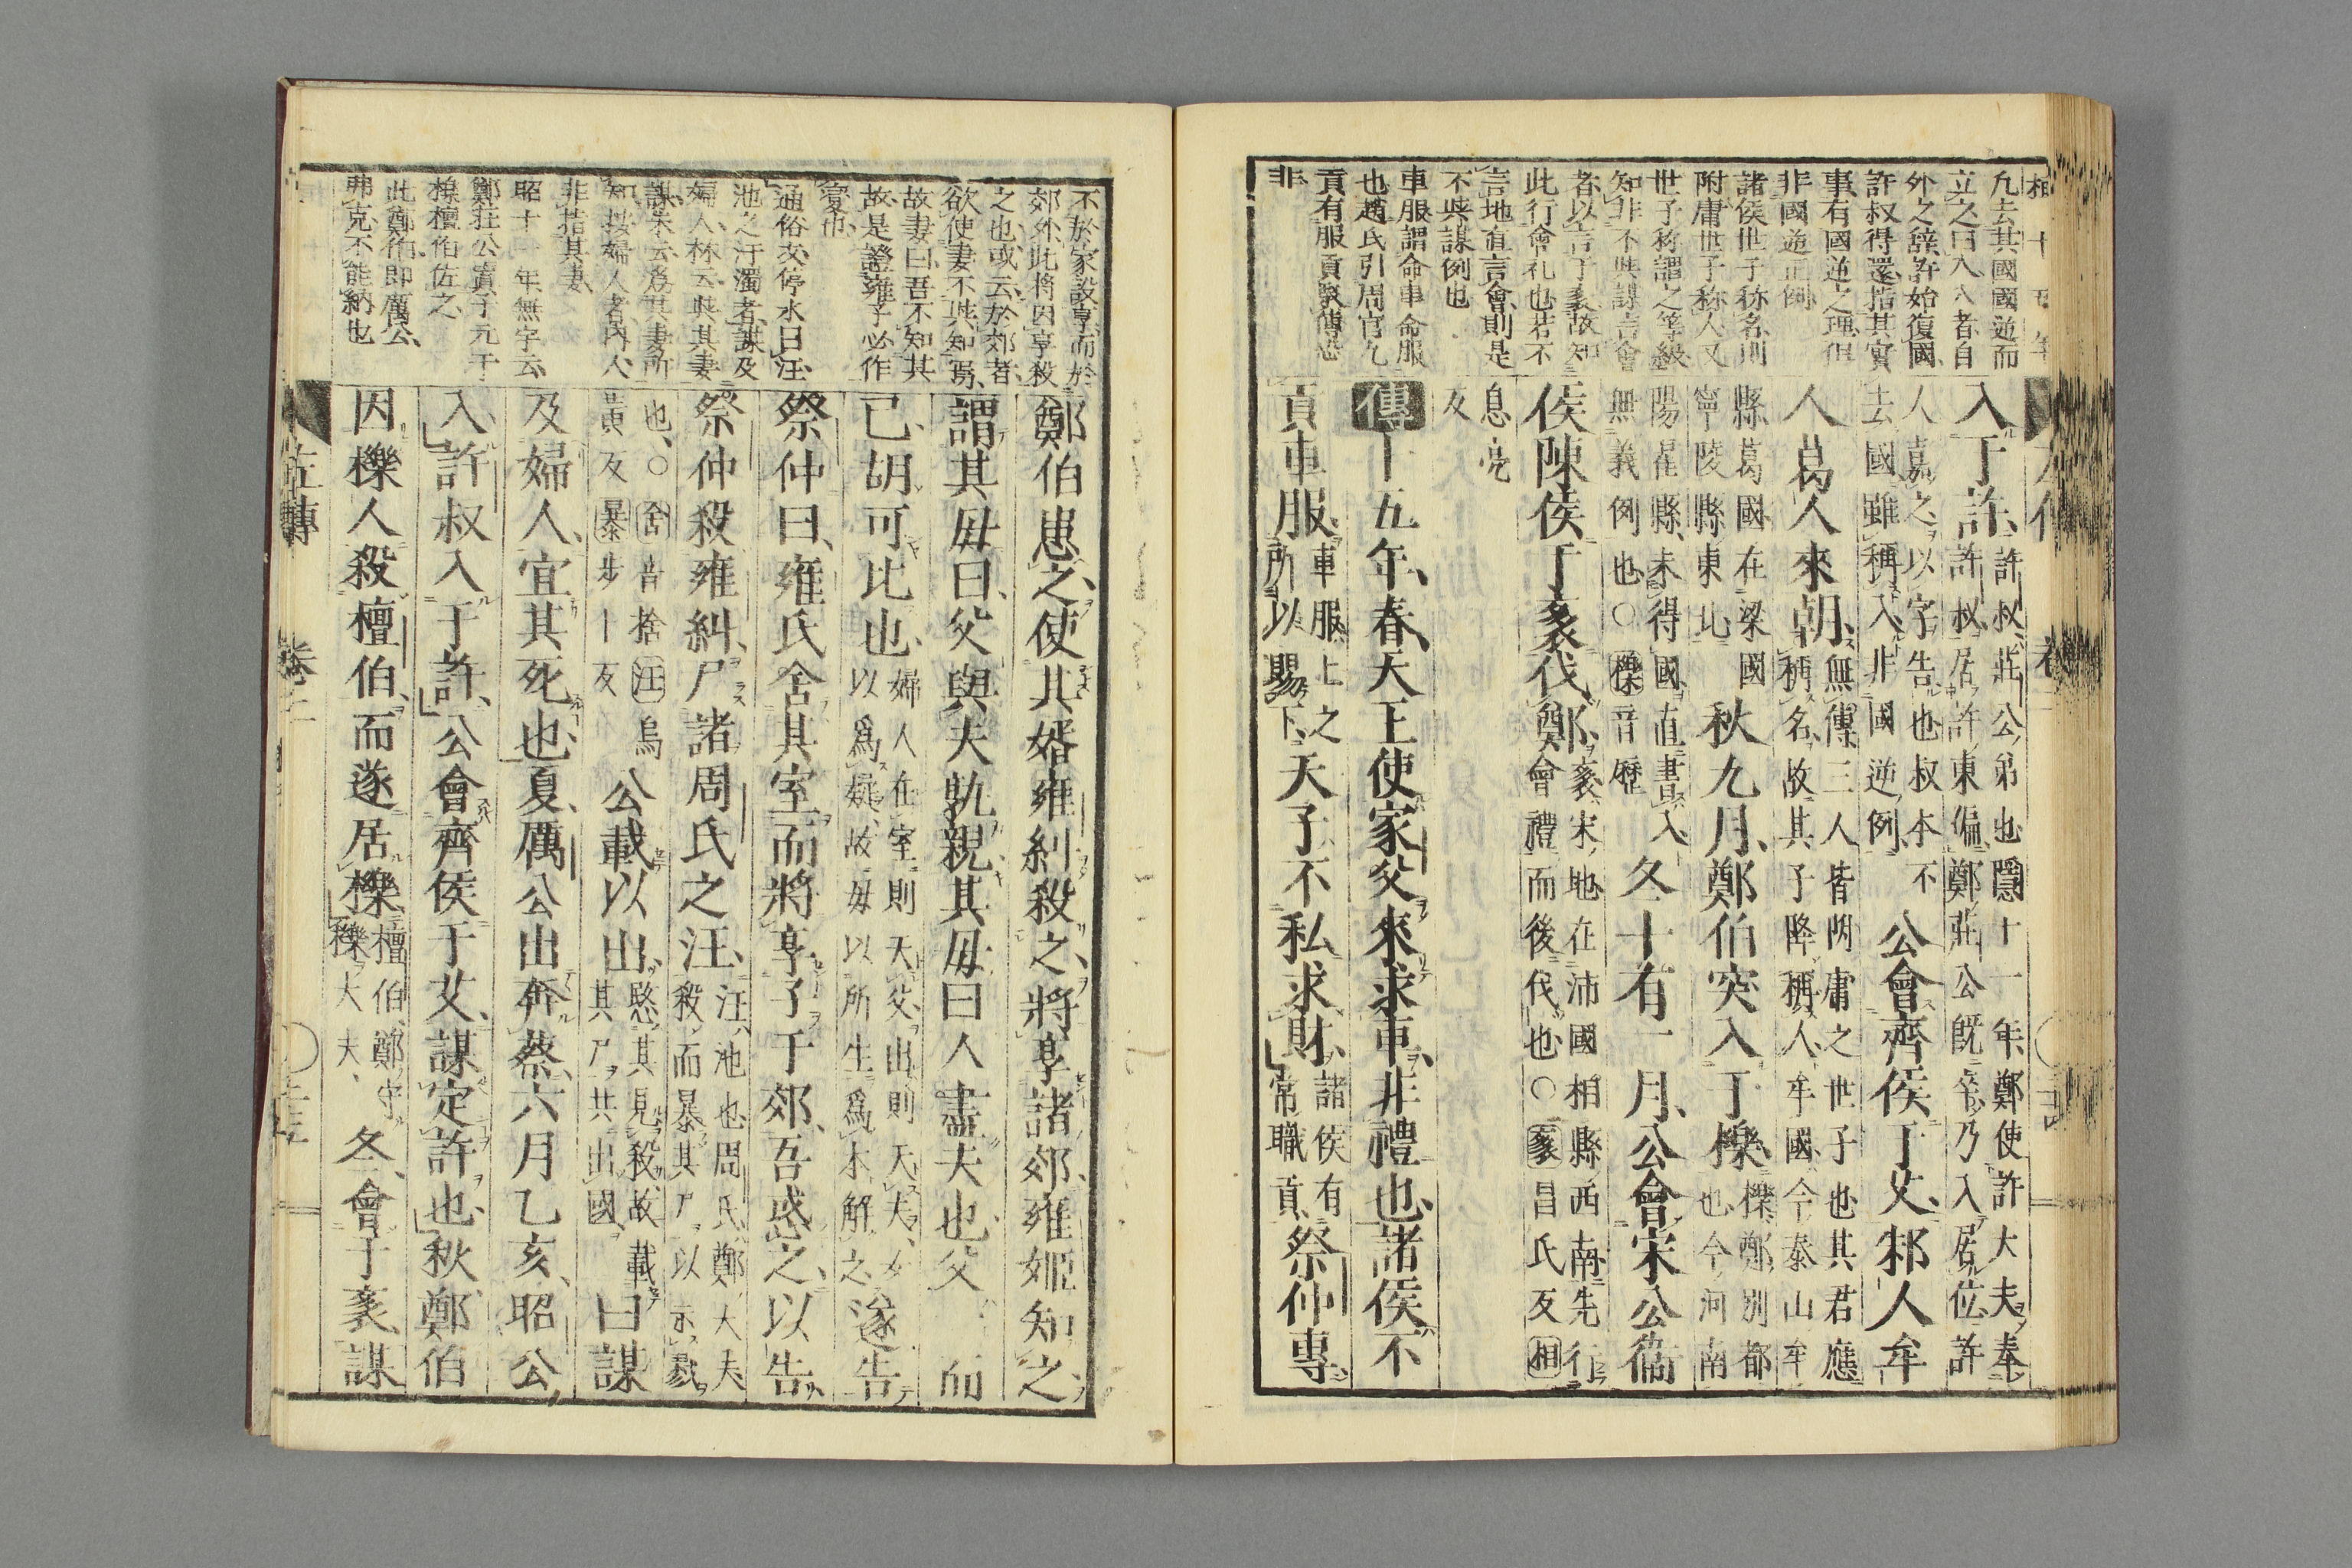 凢去其國國逆而
立之曰入入者自
外之辞許始復國
許叔得還指其實
事有國逆之理但
非國逆正例
諸侯世子称名則
附庸世子称人又
世子称謂之等級
知非不與謀言會
者以言于袲故知
此行會礼也若不
言地直言會則是
不與謀例也
車服謂命車命服
也趙氏引周官九
貢有服貢疑傳恐
非
入于許許叔莊公弟也隱十一年鄭使許大夫奉
許叔居許東偏鄭莊公旣卒乃入居位許
人嘉之以字告也叔本不
去國雖稱入非國逆例
公會齊侯于艾邾人牟
人葛人來朝無傳三人皆附庸之世子也其君應
稱名故其子降稱人牟國今泰山牟
縣葛國在梁國
寧陵縣東北
秋九月鄭伯突入于櫟櫟鄭別都
也今河南
陽翟縣未得國直書入
無義例也○櫟音歷
冬十有一月公會宋公衞
侯陳侯于袲伐鄭袲宋地在沛國相縣西南先行
會禮而後伐也○袲昌氏反相
息亮
反
傳十五年春天王使家父來求車非禮也諸侯不
貢車服車服上之
所以賜下
天子不私求財諸侯有
常職貢
祭仲專
不於家設享而於
郊外此將因享殺
之也或云於郊者
欲使妻不與知焉
故妻曰吾不知其
故是證雍子必作
変也
通俗文停水曰汪
池之汙濁者謀及
婦人林云與其妻
謀朱云為其妻所
知按婦人者內人
非指其妻
昭十一年無宇云
鄭莊公寘子元于
櫟檀伯佐之
此鄭伯即厲公
弗克不能納也
鄭伯患之使其婿雍糾殺之將享諸郊雍姬知之
謂其毋曰父與夫孰親其毋曰人盡夫也父而
已胡可比也婦人在室則天父出則天夫女
以爲疑故毋以所生爲本解之
遂告
祭仲曰雍氏舍其室而將享子于郊吾惑之以告
祭仲殺雍糾尸諸周氏之汪汪池也周氏鄭大夫
殺而暴其尸以示戮
也○舍音捨汪烏
黃反暴步卜反
公載以出愍其見殺故載
其尸共出國
曰謀
及婦人宜其死也夏厲公出奔蔡六月乙亥昭公
入許叔入于許公會齊侯于艾謀定許也秋鄭伯
因櫟人殺檀伯而遂居櫟檀伯鄭守
櫟大夫
冬會于袲謀
左傳
卷二